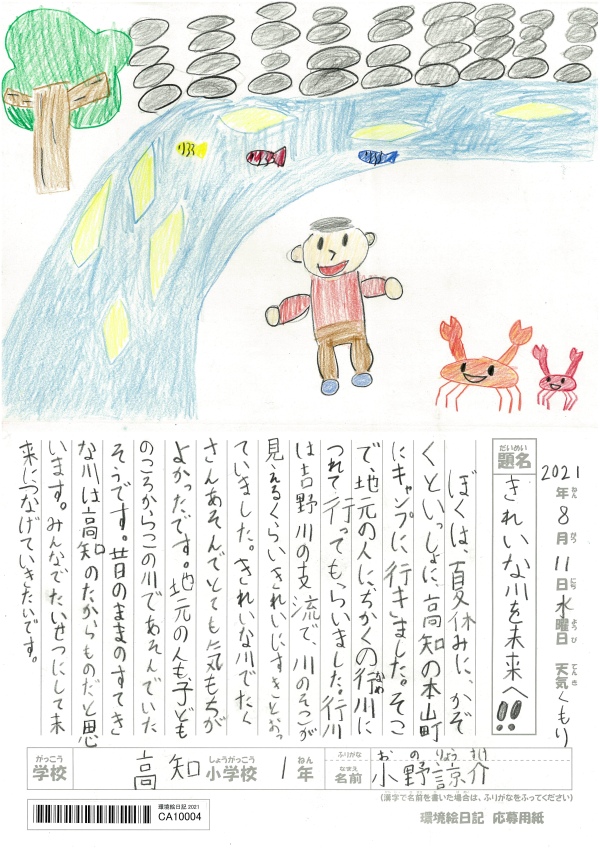 2021年8月11日水曜日 天気くもり
ねん がつ にち ようび てんき
だいめい
題名 きれいな川を未来へ!!
ぼくは、夏休みに、かぞ
くといっしょに、高知の本山町
にキャンプに行きました。そこ
で、地元の人に、ぢかくの行川に
なめ
つれて行ってもらいました。行川
は吉野川の支流で、川のそこが
見えるくらいきれいにすきとおっ
ていました。きれいな川でたく
さんあそんでとても気もちが
よかったです。地元の人も子ども
のころからこの川であそんでいた
そうです。昔のままのすてき
な川は高知のたからものだと思
います。みんなでたいせつにして未
来につなげていきたいです。
がっこう しょうがっこう ねん ふりがな お の りょう すけ
学校 高知小学校 1年 なまえ 名前 小野諒介
(漢字で名前を書いた場合は、ふりがなをふってください)
環境絵日記 2021
CA10004
環境絵日記 応募用紙